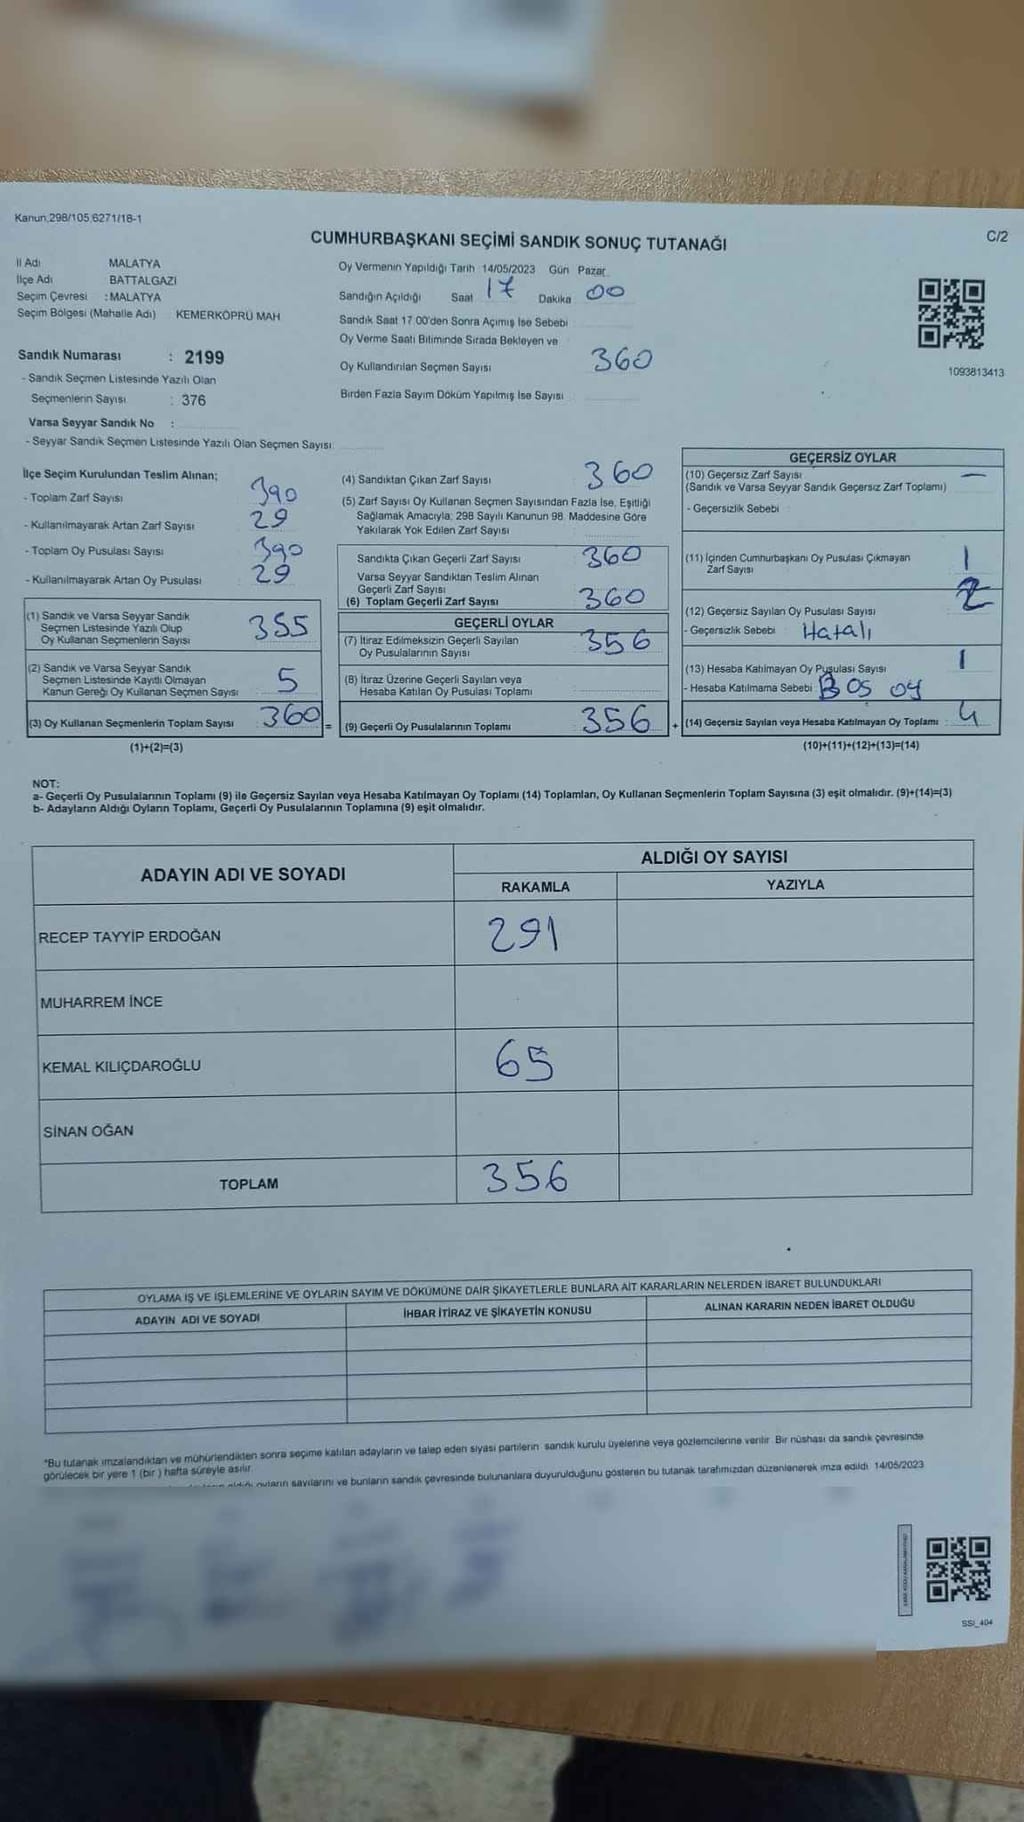 Kanun,298/105,6271/18-1
CUMHURBAŞKANI SEÇİMİ SANDIK SONUÇ TUTANAĞI
C/2
İl Adı MALATYA
İlçe Adı BATTALGAZI
Seçim Çevresi : MALATYA
Seçim Bölgesi (Mahalle Adı) : KEMERKÖPRÜ MAH
Sandık Numarası : 2199
- Sandık Seçmen Listesinde Yazılı Olan
Seçmenlerin Sayısı : 376
Varsa Seyyar Sandık No :
- Seyyar Sandık Seçmen Listesinde Yazılı Olan Seçmen Sayısı:
Oy Vermenin Yapıldığı Tarih :14/05/2023 Gün Pazar
Sandığın Açıldığı Saat 17 Dakika 00
Sandık Saat 17.00'den Sonra Açımış İse Sebebi
Oy Verme Saati Bitiminde Sırada Bekleyen ve
Oy Kullandırılan Seçmen Sayısı 360
Birden Fazla Sayım Döküm Yapılmış İse Sayısı
1093813413
İlçe Seçim Kurulundan Teslim Alınan;
- Toplam Zarf Sayısı 390
- Kullanılmayarak Artan Zarf Sayısı 29
- Toplam Oy Pusulası Sayısı 390
- Kullanılmayarak Artan Oy Pusulası 29
(1) Sandık ve Varsa Seyyar Sandık
Seçmen Listesinde Yazılı Olup
Oy Kullanan Seçmenlerin Sayısı 355
(2) Sandık ve Varsa Seyyar Sandık
Seçmen Listesinde Kayıtlı Olmayan
Kanun Gereği Oy Kullanan Seçmen Sayısı 5
(3) Oy Kullanan Seçmenlerin Toplam Sayısı 360 =
(1)+(2)=(3)
(4) Sandıktan Çıkan Zarf Sayısı 360
(5) Zarf Sayısı Oy Kullanan Seçmen Sayısından Fazla İse, Eşitliği
Sağlamak Amacıyla; 298 Sayılı Kanunun 98. Maddesine Göre
Yakılarak Yok Edilen Zarf Sayısı
Sandıkta Çıkan Geçerli Zarf Sayısı 360
Varsa Seyyar Sandıktan Teslim Alınan
Geçerli Zarf Sayısı
(6) Toplam Geçerli Zarf Sayısı 360
GEÇERLİ OYLAR
(7) İtiraz Edilmeksizin Geçerli Sayılan
Oy Pusulalarının Sayısı 356
(8) İtiraz Üzerine Geçerli Sayılan veya
Hesaba Katılan Oy Pusulası Toplamı
(9) Geçerli Oy Pusulalarının Toplamı 356 +
GEÇERSİZ OYLAR
(10) Geçersiz Zarf Sayısı —
(Sandık ve Varsa Seyyar Sandık Geçersiz Zarf Toplamı)
- Geçersizlik Sebebi :
(11) İçinden Cumhurbaşkanı Oy Pusulası Çıkmayan
Zarf Sayısı 1
(12) Geçersiz Sayılan Oy Pusulası Sayısı 2
- Geçersizlik Sebebi Hatalı
(13) Hesaba Katılmayan Oy Pusulası Sayısı 1
- Hesaba Katılmama Sebebi Boş oy
(14) Geçersiz Sayılan veya Hesaba Katılmayan Oy Toplamı : 4
(10)+(11)+(12)+(13)=(14)
NOT:
a- Geçerli Oy Pusulalarının Toplamı (9) ile Geçersiz Sayılan veya Hesaba Katılmayan Oy Toplamı (14) Toplamları, Oy Kullanan Seçmenlerin Toplam Sayısına (3) eşit olmalıdır. (9)+(14)=(3)
b- Adayların Aldığı Oyların Toplamı, Geçerli Oy Pusulalarının Toplamına (9) eşit olmalıdır.
ADAYIN ADI VE SOYADI
ALDIĞI OY SAYISI
RAKAMLA YAZIYLA
RECEP TAYYİP ERDOĞAN 291
MUHARREM İNCE
KEMAL KILIÇDAROĞLU 65
SİNAN OĞAN
TOPLAM 356
OYLAMA İŞ VE İŞLEMLERİNE VE OYLARIN SAYIM VE DÖKÜMÜNE DAİR ŞİKAYETLERLE BUNLARA AİT KARARLARIN NELERDEN İBARET BULUNDUKLARI
ADAYIN ADI VE SOYADI İHBAR İTİRAZ VE ŞİKAYETİN KONUSU ALINAN KARARIN NEDEN İBARET OLDUĞU
*Bu tutanak imzalandıktan ve mühürlendikten sonra seçime katılan adayların ve talep eden siyasi partilerin sandık kurulu üyelerine veya gözlemcilerine verilir. Bir nüshası da sandık çevresinde
görülecek bir yere 1 (bir) hafta süreyle asılır.
oyların sayılarını ve bunların sandık çevresinde bulunanlara duyurulduğunu gösteren bu tutanak tarafımızdan düzenlenerek imza edildi. 14/05/2023
SSI_404